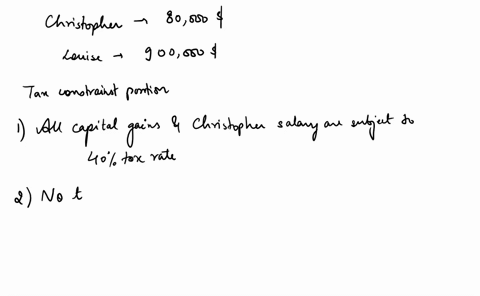 Christopher → 80,000 $
Louise → 900,000 $
Tax constraint portion
1) All capital gains & Christopher salary are subject to
40% tax rate
2) No t